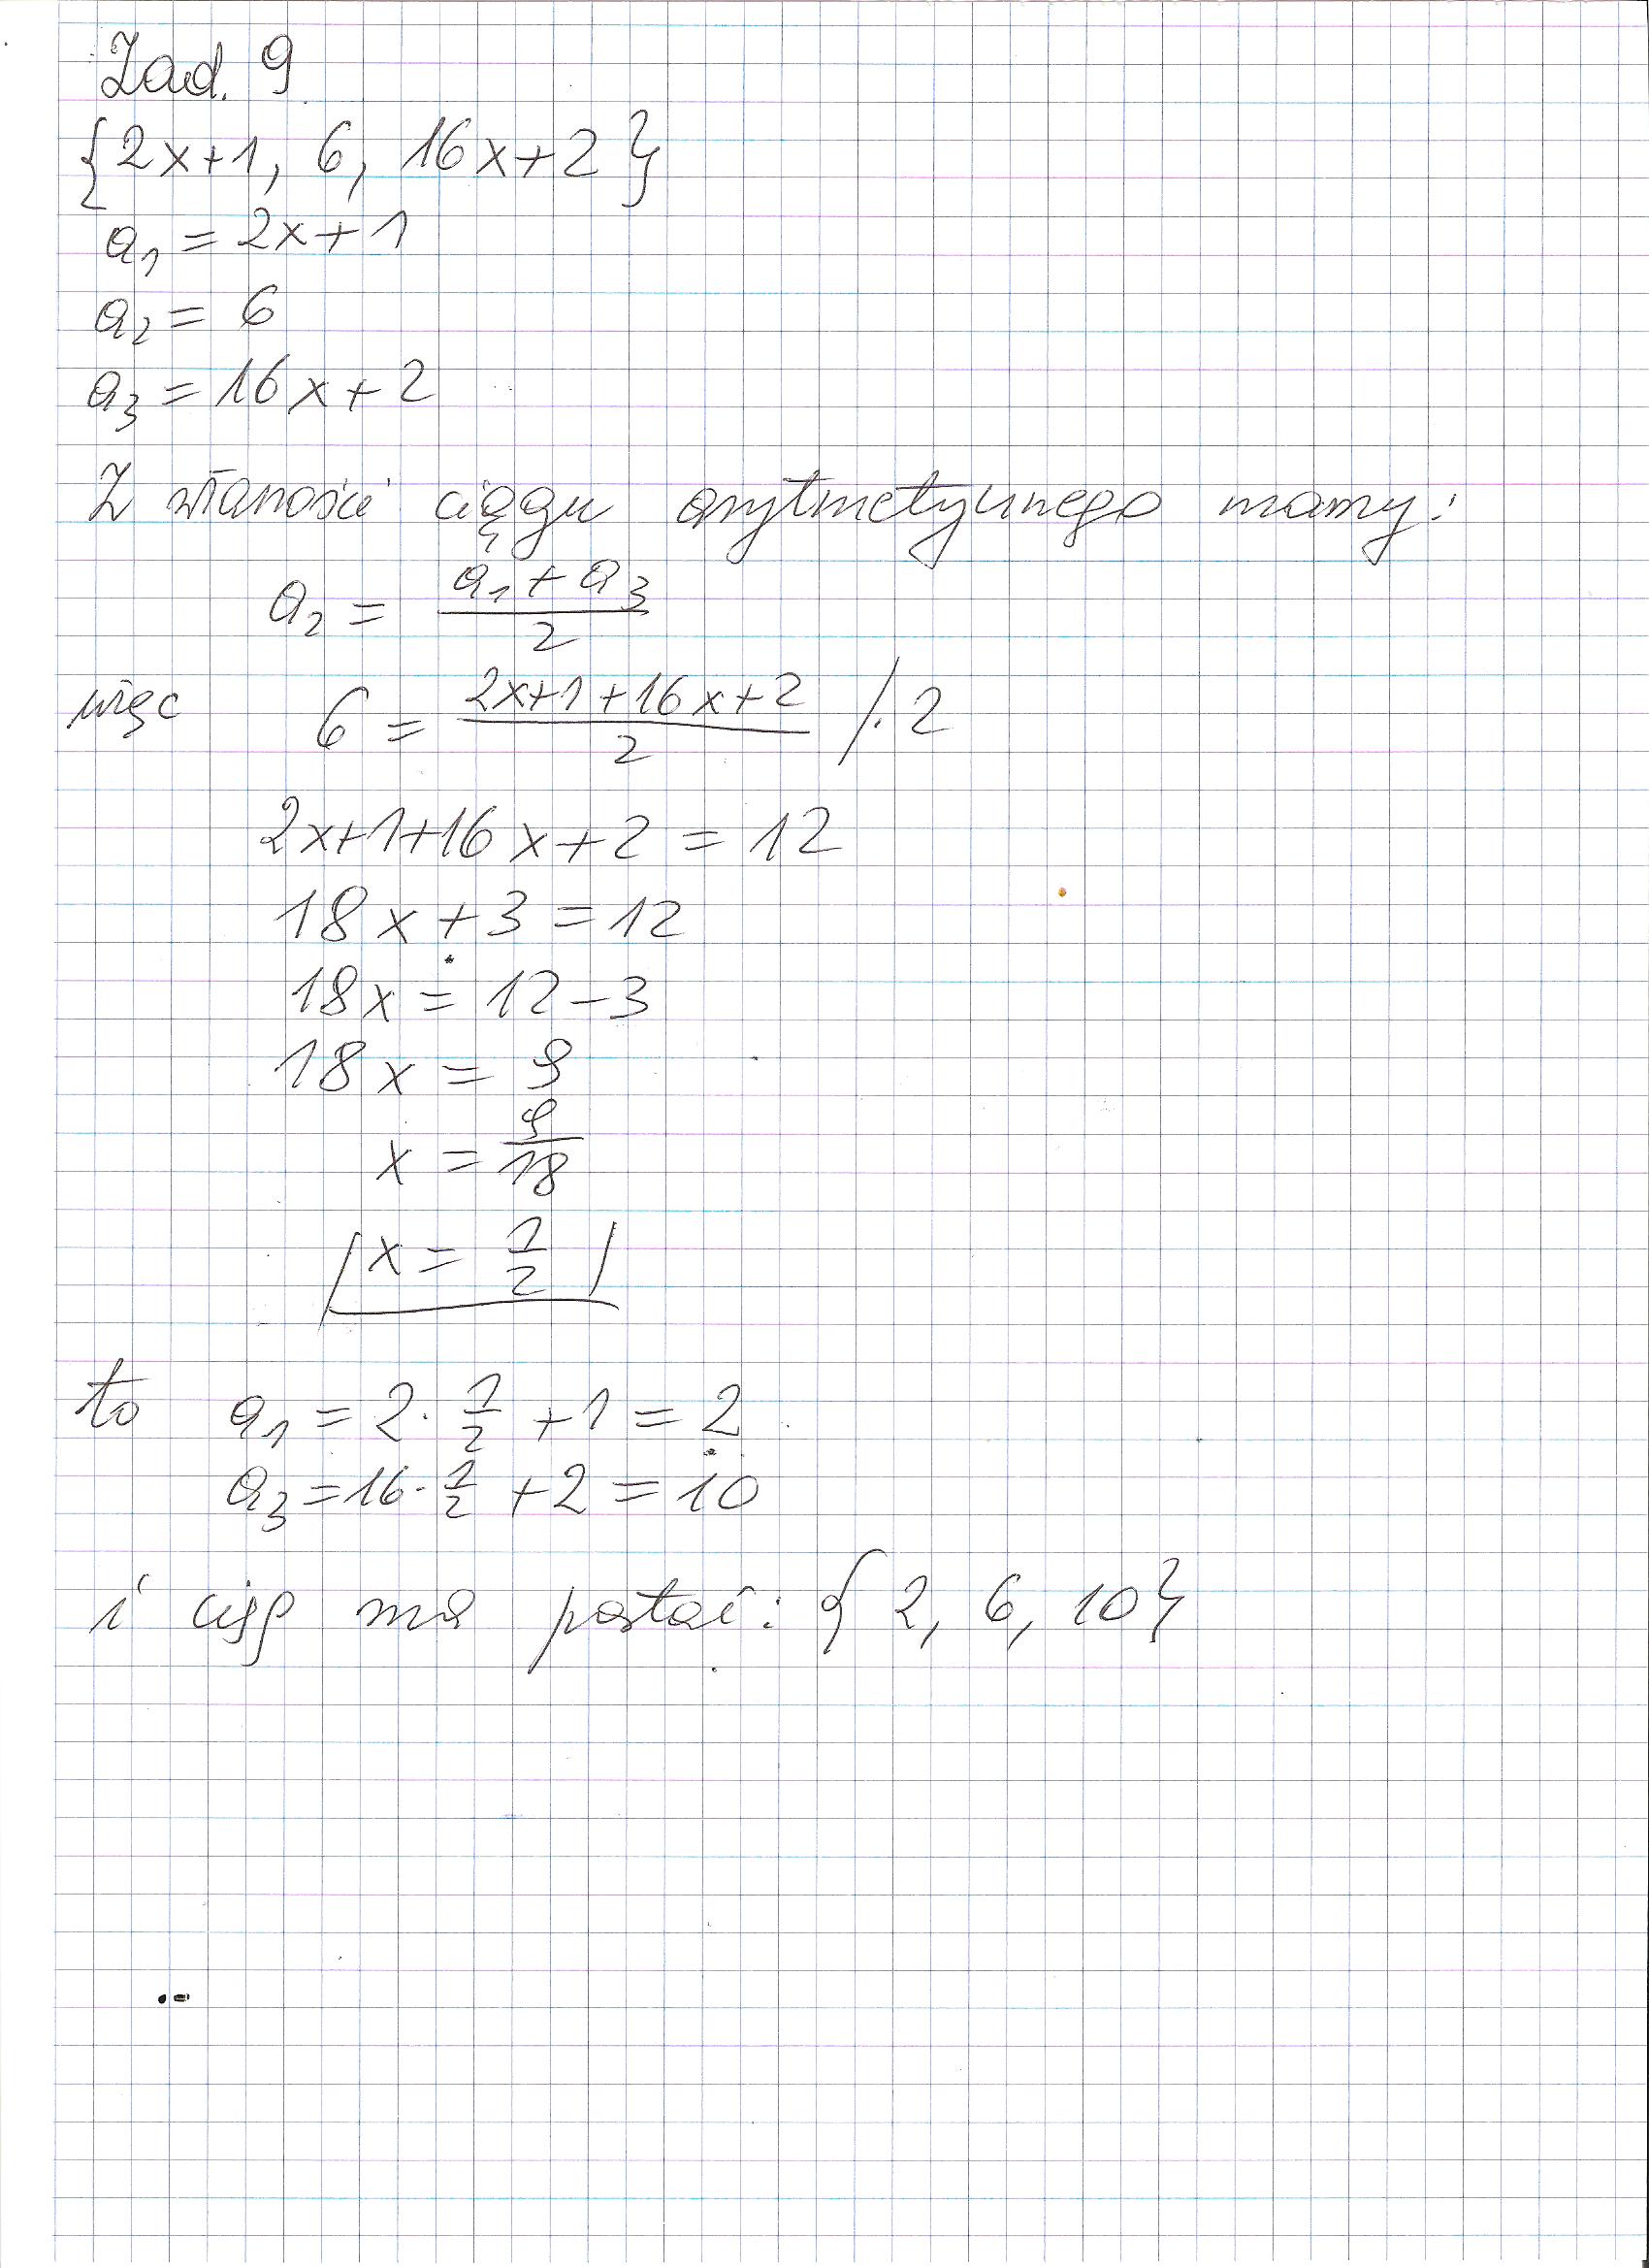 Zad. 9
{2x+1, 6, 16x+2}
a₁ = 2x+1
a₂ = 6
a₃ = 16x+2
Z własności ciągu arytmetycznego mamy:
a₂ = (a₁+a₃)/2
więc 6 = (2x+1+16x+2)/2 /·2
2x+1+16x+2 = 12
18x+3 = 12
18x = 12-3
18x = 9
x = 9/18
x = 1/2
to a₁ = 2·1/2 +1 = 2
a₃ = 16·1/2 +2 = 10
i ciąg ma postać: {2, 6, 10}